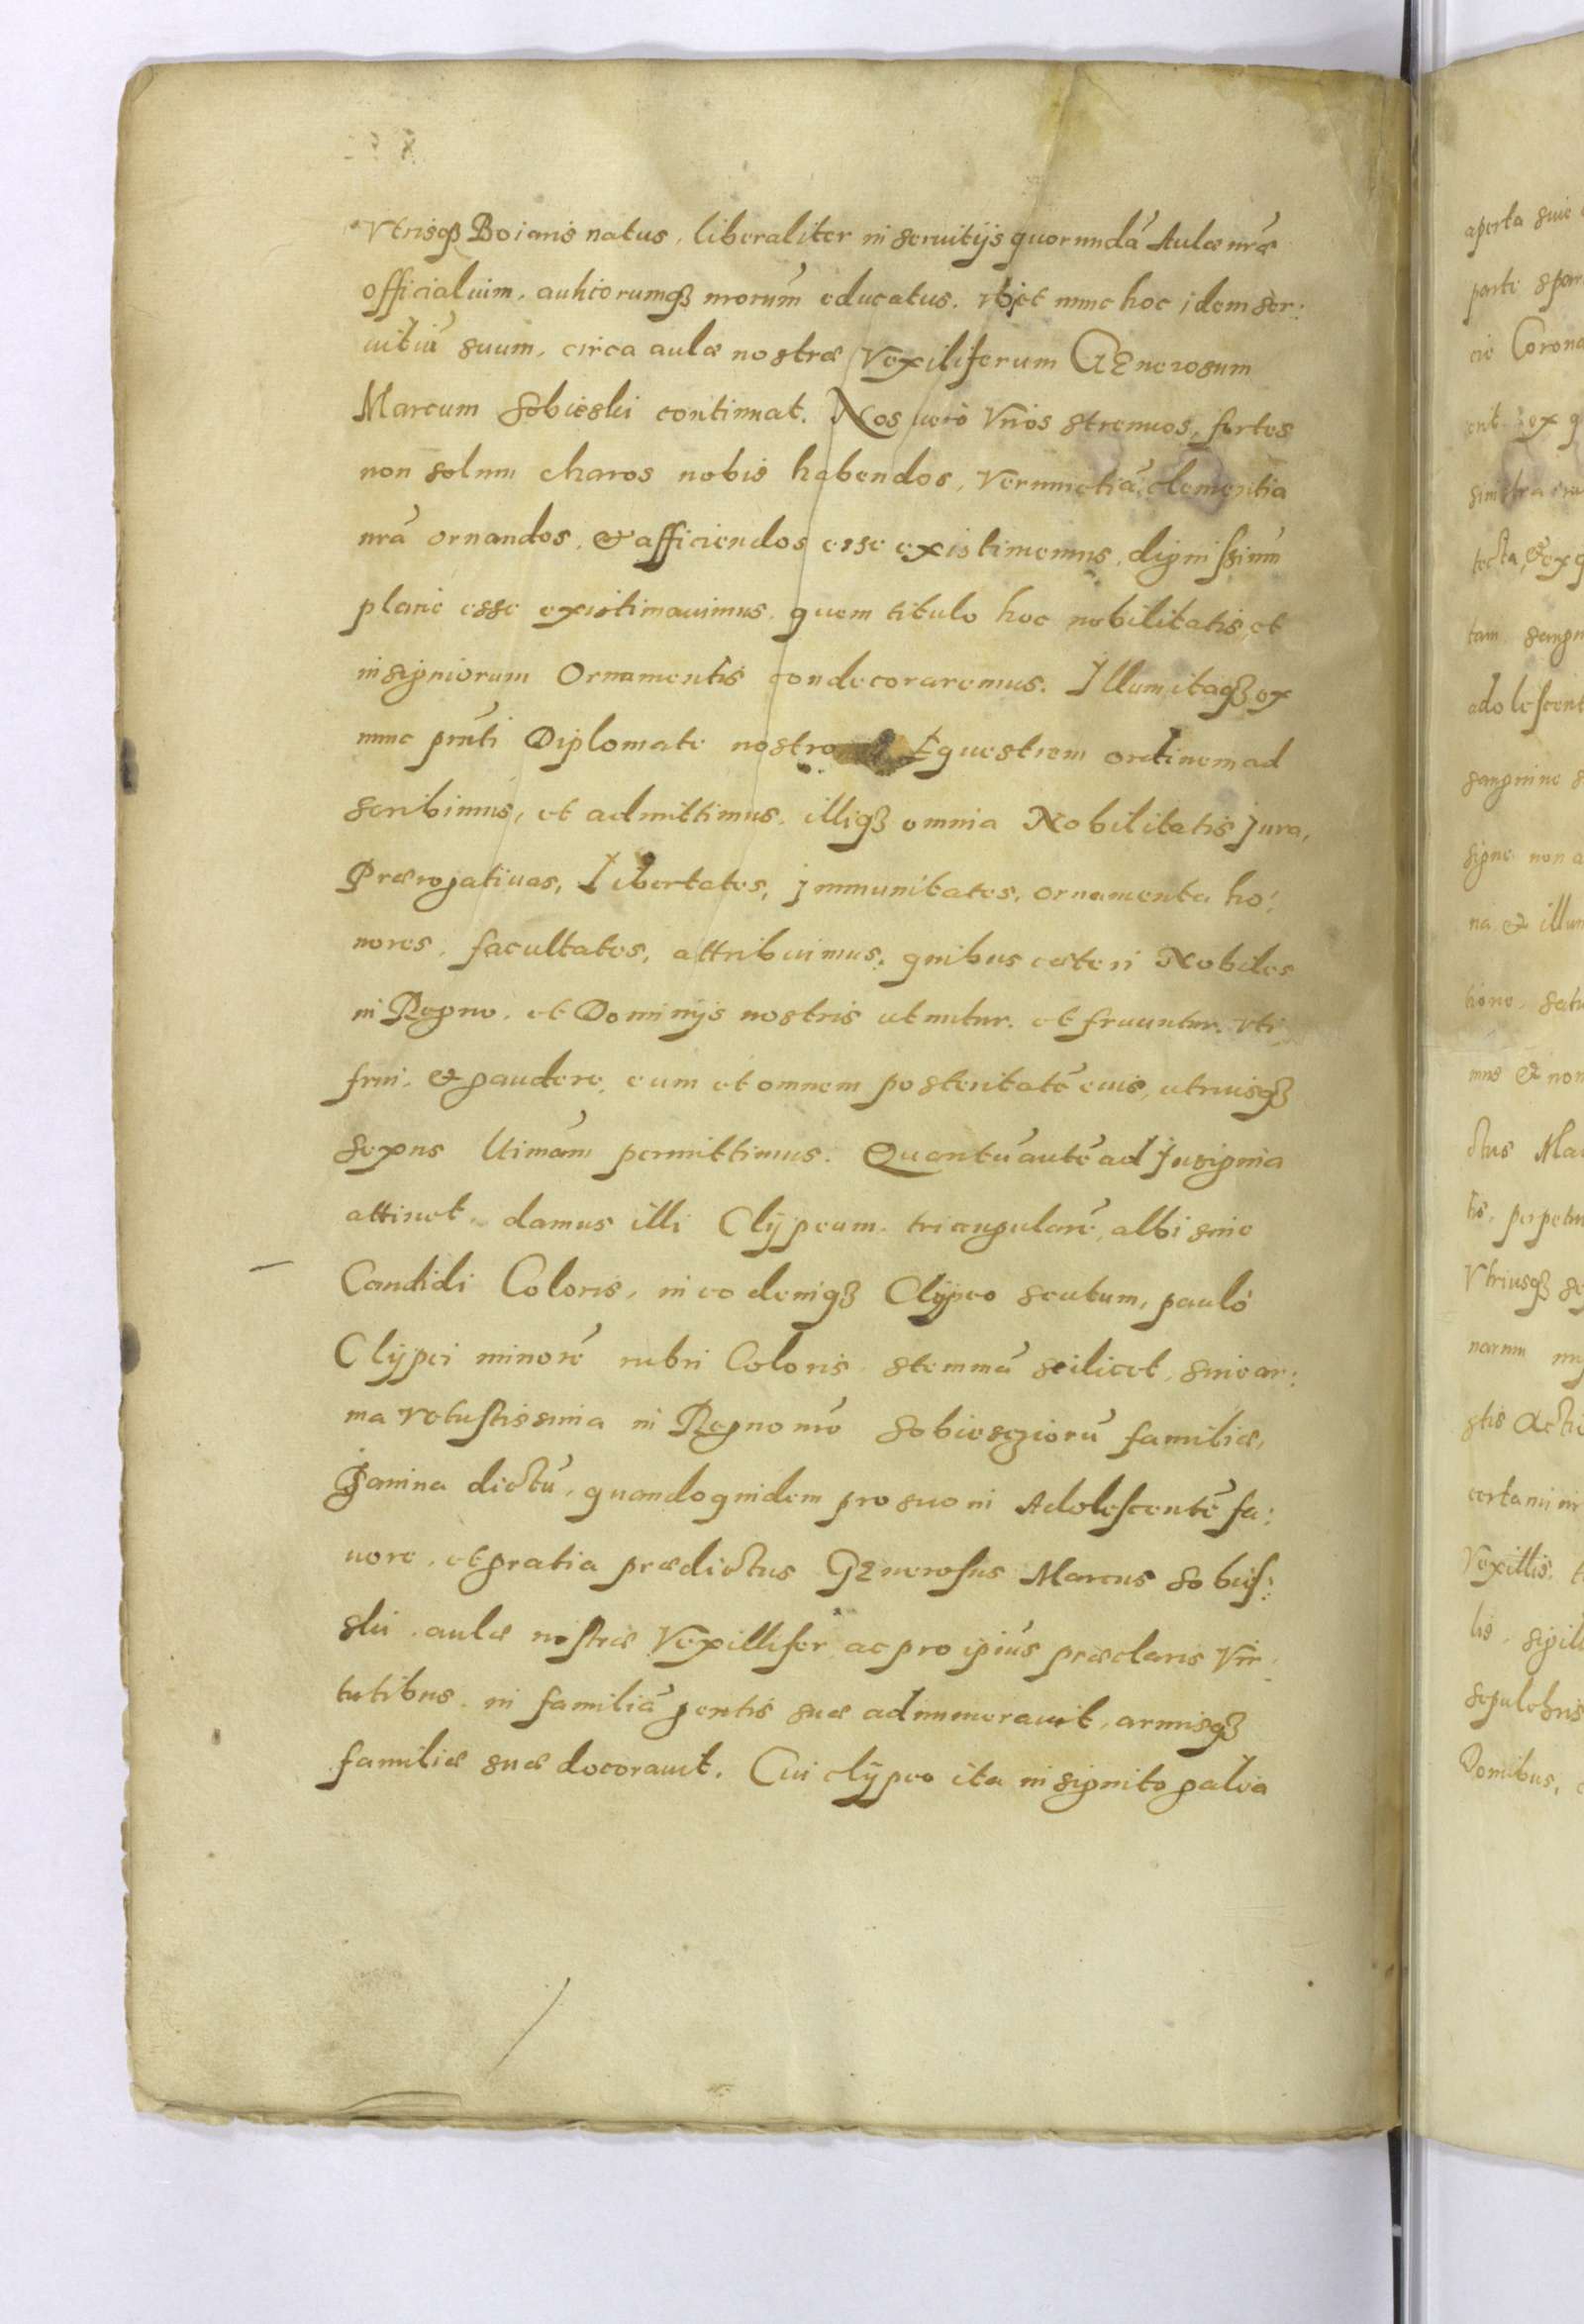 Vtrisqȝ Boiaris natus, liberaliter in seruitijs quorundā Aulæ nr̃æ
officialium, aulicorumqȝ morum̃ educatus. et nunc hoc idem ser:
uitiũ suum, circa aulæ nostræ Vexiliferum GEnerosum
Marcum Sobieski continuat. Nos uerò Viros strenuos, fortes
non solum charos nobis habendos, Verumetiã clementia
nr̃a ornandos, & afficiendos esse existimemus, dignissimũ
plane esse existimauimus, quem titulo hoc nobilitatis, et
insigniorum Ornamentis condecoraremus. Illum itaqȝ ex
nunc pnt̃i Diplomate nostro Equestrem ordinem ad
scribimus, et admittimus, illiqȝ omnia Nobilitatis Jura,
Prærogatiuas, Libertates, Immunitates, ornamenta ho:
nores, facultates, attribuimus, quibus cæteri Nobiles
in Regno, et Dominijs nostris utuntur, et fruuntur. Vti
frui, & gaudere, eum et omnem posteritatẽ eius, utriusqȝ
sexus ltimam̃ permittimus. Quantũ autẽ ad Insignia
attinet, damus illi Clypeum triangularẽ, albi siue
Candidi Coloris, in eo deniqȝ Clypeo scutum, paulò
Clypei minorẽ rubri Coloris stemmã scilicet, siue ar:
ma vetustissima in Regno nr̃o Sobiesciorũ familiæ,
Janina dictũ, quandoquidem pro suo in Adolescentẽ fa:
uore, et gratia prædictus GEnerosus Marcus Sobies:
ski, aulæ nostræ Vexillifer, ac pro ipius præclaris Vir:
tutibus, in familiã gentis suæ adnumerauit, armisqȝ
familiæ suæ decorauit. Cui clypeo ita insignito galea
aperta siue
parti
cie Corona
ex
sinistra
tecta, & ex
tam
adolescent
sanguine
signe non a
na & illum
tione,
mus & non
ctus Mar
perpetu
Vtriusqȝ se
narum
certami
Vexillis,
lis, sigill
sepulchris
Domibus,